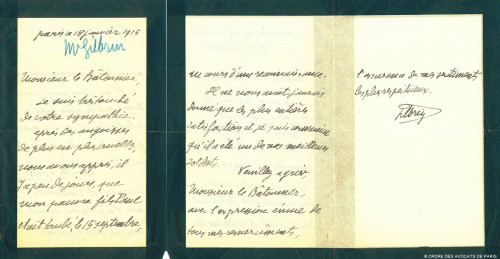 paris le 18 janvier 1915
Monsieur le Bâtonnier,
je suis très touché
de votre sympathie.
après des angoisses
de plus en plus cruelles,
nous avons appris, il
y a peu de jours, que
mon pauvre fils Paul
était tombé, le 15 septembre,
au cours d'une reconnaissance.
Il ne nous avait jamais
donné que les plus entières
satisfactions et je suis convaincu
qu'il a été un de nos meilleurs
soldats.
Veuillez agréer
Monsieur le Bâtonnier
avec l'expression émue de
tous mes remerciements,
l'assurance de mes sentiments
les plus respectueux.
© ORDRE DES AVOCATS DE PARIS